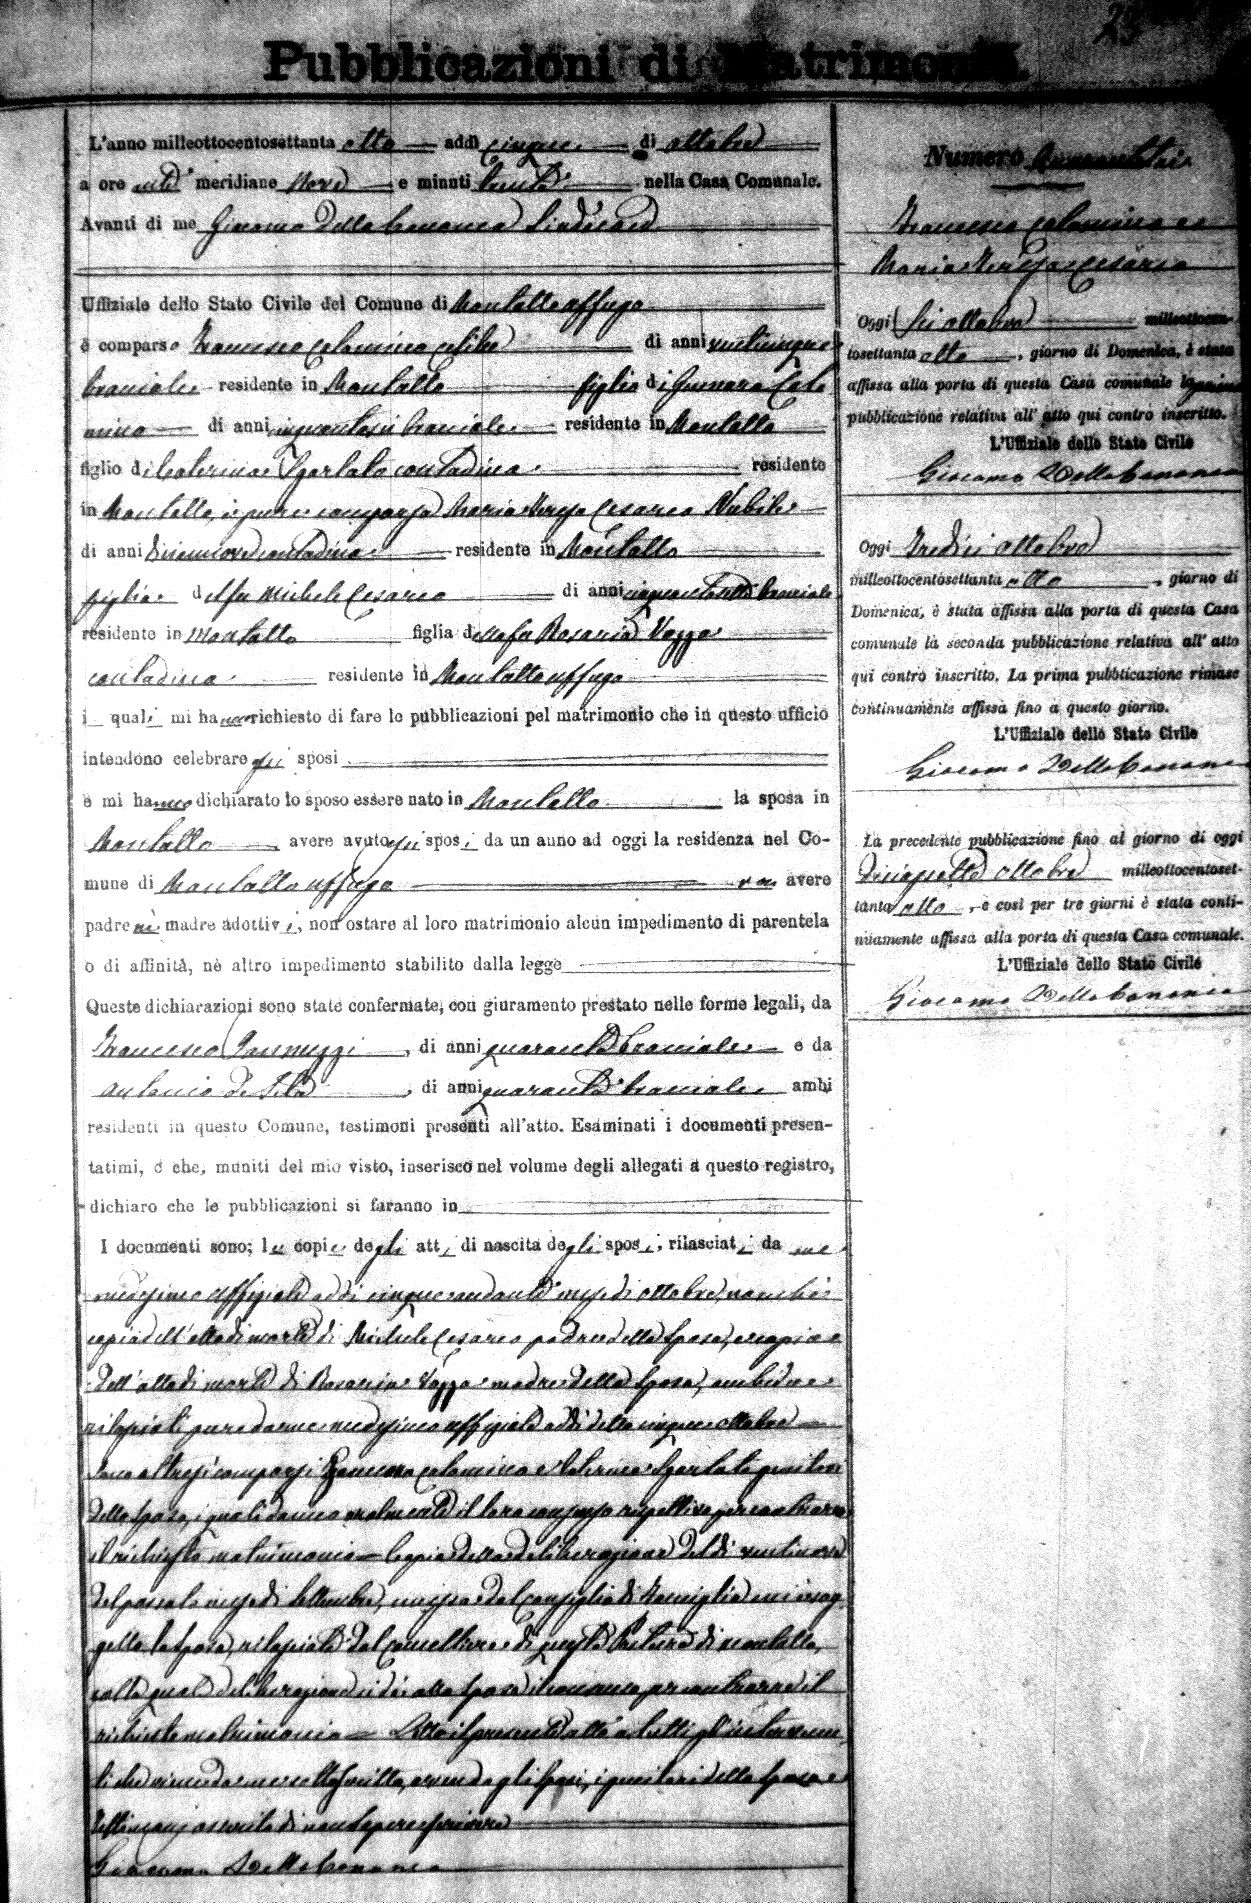 23
Pubblicazioni di Matrimonio.
L'anno milleottocentosettanta otto addì cinque di ottobre
a ore anti meridiane Nove e minuti trenta nella Casa Comunale.
Avanti di me Giacomo Della Cananea Sindaco
Uffiziale dello Stato Civile del Comune di Montalto Uffugo
è comparso Francesco Calomino celibe di anni venticinque
bracciale residente in Montalto figlio di Gennaro Calo
mino di anni cinquantasei bracciale residente in Montalto
figlio di Caterina Sgarlato contadina residente
in Montalto, è pure comparsa Maria Teresa Cesareo Nubile
di anni diciannove contadina residente in Montalto
figlia del fu Michele Cesareo di anni bracciale
residente in Montalto figlia della fu Rosaria Vozza
contadina residente in Montalto Uffugo
i quali mi hanno richiesto di fare le pubblicazioni pel matrimonio che in questo ufficio
intendono celebrare gli sposi
e mi hanno dichiarato lo sposo essere nato in Montalto la sposa in
Montalto avere avuto gli sposi da un anno ad oggi la residenza nel Co-
mune di Montalto Uffugo avere
padre nè madre adottivi, non ostare al loro matrimonio alcun impedimento di parentela
o di affinità, nè altro impedimento stabilito dalla legge
Queste dichiarazioni sono state confermate, con giuramento prestato nelle forme legali, da
Francesco Iannuzzi, di anni quaranta bracciale e da
Antonio de Seta, di anni quaranta bracciale ambi
residenti in questo Comune, testimoni presenti all'atto. Esaminati i documenti presen-
tatimi, e che, muniti del mio visto, inserisco nel volume degli allegati a questo registro,
dichiaro che le pubblicazioni si faranno in
I documenti sono; le copie degli atti di nascita degli sposi, rilasciati da me
medesimo uffiziale addì cinque andante mese di ottobre, nonchè
copia dell'atto di morte di Michele Cesareo padre della sposa, e copia
dell'atto di morte di Rosaria Vozza madre della sposa, ambidue
rilasciati pure da me medesimo uffiziale addì detto cinque ottobre
Sono altresì comparsi Gennaro Calomino e Caterina Sgarlato genitori
dello sposo, i quali danno verbalmente il loro consenso rispettivo per contrarre
il richiesto matrimonio Copia della deliberazione del dì ventinove
del passato mese di Settembre, emessa dal Consiglio di Famiglia
la sposa, rilasciata dal Cancelliere di questa Pretura di Montalto,
colla quale deliberazione si dà alla sposa il consenso per contrarre il
richiesto matrimonio Letto il presente atto a tutti gl'intervenu
ti che viene da me sottoscritto, avendo gli sposi, i genitori dello sposo e
testimoni asserito di non sapere scrivere
Giacomo Della Cananea
Numero Quarantasei
Francesco Calomino e
Maria Teresa Cesareo
Oggi Sei ottobre milleottocen-
tosettanta otto, giorno di Domenica, è stata
affissa alla porta di questa Casa comunale la prima
pubblicazione relativa all' atto qui contro inscritto.
L'Uffiziale dello Stato Civile
Giacomo Della Cananea
Oggi Tredici ottobre
milleottocentosettanta otto, giorno di
Domenica, è stata affissa alla porta di questa Casa
comunale la seconda pubblicazione relativa all' atto
qui contro inscritto. La prima pubblicazione rimase
continuamente affissa fino a questo giorno.
L'Uffiziale dello Stato Civile
Giacomo Della Cananea
La precedente pubblicazione fino al giorno di oggi
Diciassette ottobre milleottocentoset-
tanta otto, e così per tre giorni è stata conti-
nuamente affissa alla porta di questa Casa comunale.
L'Uffiziale dello Stato Civile
Giacomo Della Cananea